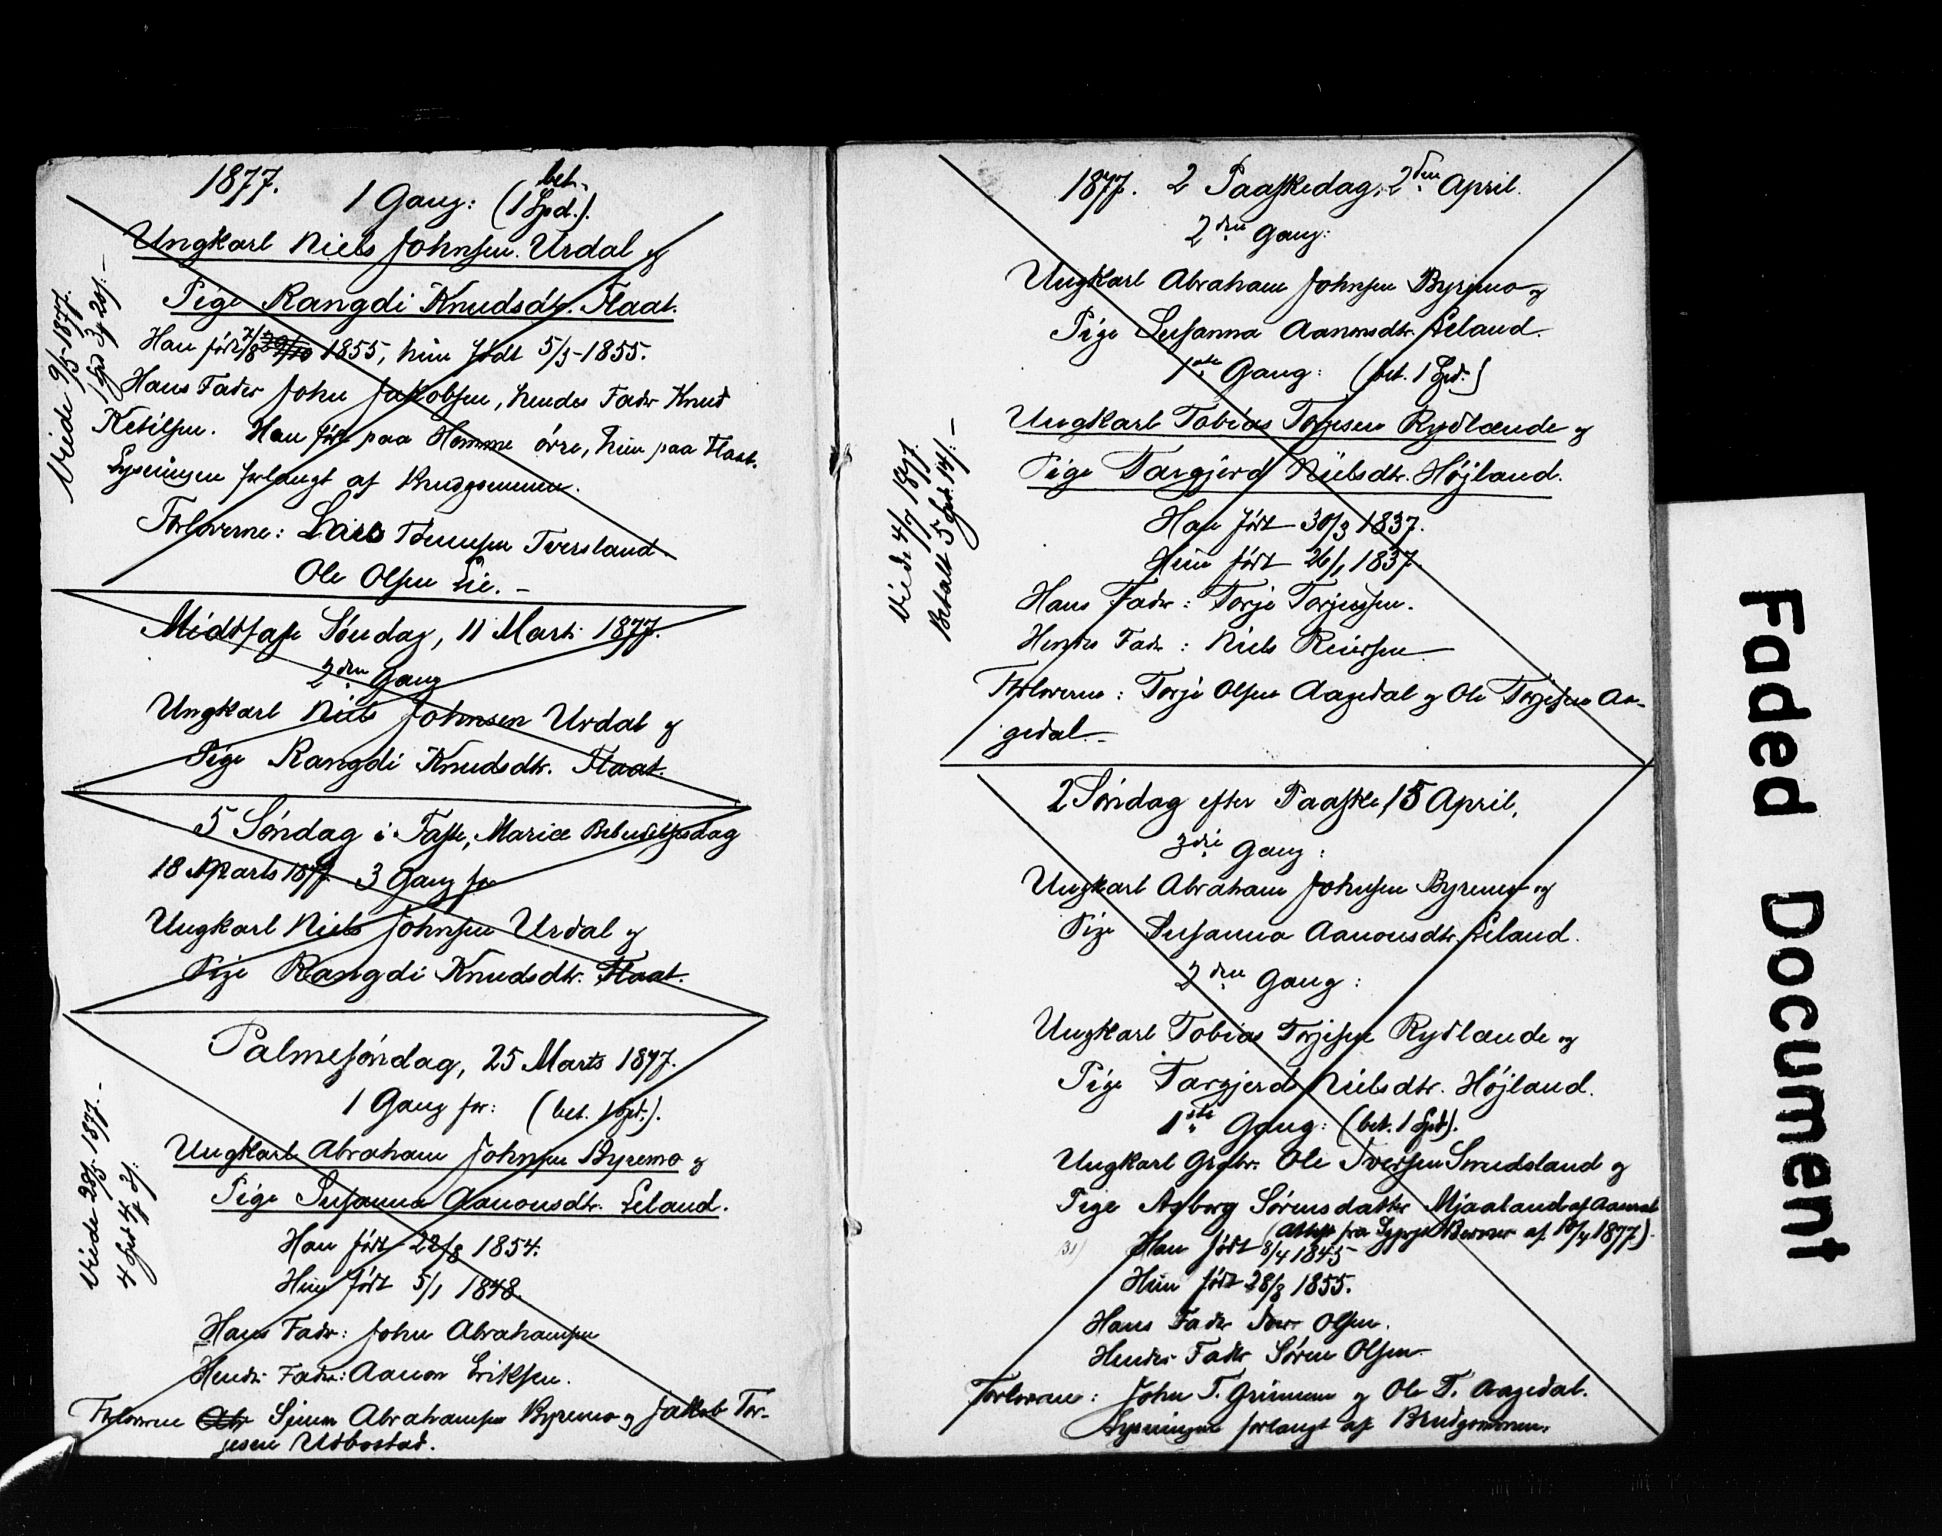 1877.
1 Gang: (bet. 1 Spd.).
Ungkarl Niels Johnsen Urdal og
Pige Rangdi Knudsdtr. Flaat.
Han født 7/8 1855, hun født 5/5-1855.
Hans Fader John Jakobsen, hendes Fader Knud
Ketilsen. Han født paa Homme övre, hun paa Flaat.
Lysningen forlangt af Brudgommen.
Forloverne: Lars Tversland.
Ole Olsen Lie. -
Viede 9/5-1877.
1 Spd 3 20/.-
Midtfaste Søndag, 11 Marts 1877.
2den Gang
Ungkarl Niels Johnsen Urdal og
Pige Rangdi Knudsdtr. Flaat.
5 Søndag i Faste, Mariæ Bebudelsesdag
18 Marts 1877. 3 Gang for
Ungkarl Niels Johnsen Urdal og
Pige Rangdi Knudsdtr. Flaat.
Palmesøndag, 25 Marts 1877.
1 Gang for: (bet. 1 Spd.).
Ungkarl Abraham Johnsen Byremo og
Pige Susanna Aanonsdtr. Eeland.
Han født 22/8 1854.
Hun født 5/1 1848.
Hans Fader: John Abrahamsen
Hendes Fader: Aanon Eriksen.
Forloverne Abr Abrahamsen Byremo og Jakob Tor-
jesen Udbostad.
Viede 28/5 1877.-
4 Spd
1877. 2 Paaskedag, 2den April.
2den Gang:
Ungkarl Abraham Johnsen Byremo og
Pige Susanna Aanonsdtr. Eeland.
1ste Gang: (bet. 1 Spd.)
Ungkarl Tobias Torjesen Rydlænde og
Pige Targjerd Nielsdtr. Højland.
Han født 30/3 1837.
Hun født 26/1 1837.
Hans Fader: Torje Torjussen.
Hendes Fader: Niels Reiersen
Forloverne: Torje Olsen Aagedal og Ole Torjesen Aa-
gedal.-
Viede 4/7 1877.
Betalt 5 Spd. 14/.-
2 Søndag efter Paaske, 15 April,
3die Gang:
Ungkarl Abraham Johnsen Byremo og
Pige Susanna Aanonsdtr. Eeland.
2den Gang:
Ungkarl Tobias Torjesen Rydlænde og
Pige Targjerd Nielsdtr. Højland.
1ste Gang: (bet. 1 Spd).
Ungkarl Grdbr. Ole Iversen Smedsland og
Pige Asborg Sørensdatter Mjaaland af Aaseral
(Attest fra Sgprst Berner af 10/4 1877).
Han født 8/4 1845
Hun født 28/3 1855.
Hans Fader Iver Olsen.
Hendes Fader Søren Olsen
Forloverne: John T. Grimnem og Ole T. Aagedal.
Lysningen forlangt af Brudgommen.
Faded Document